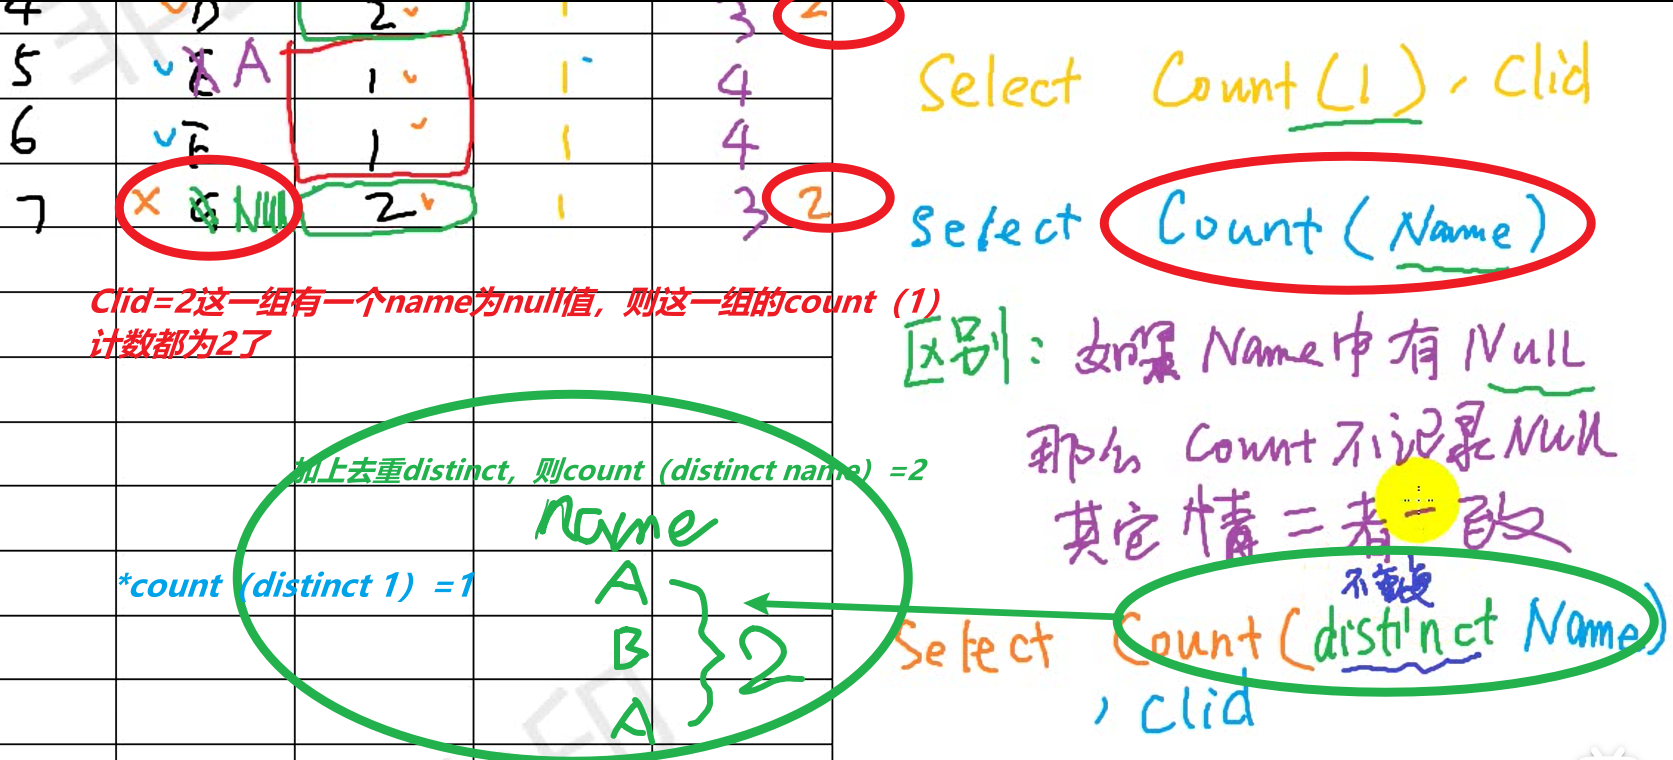 4 D 2 1 3 2
5 E A 1 1 4
6 F 1 1 4
7 × G Null 2 1 3 2
Clid=2这一组有一个name为null值，则这一组的count（1）
计数都为2了
加上去重distinct，则count（distinct name）=2
name
*count（distinct 1）=1
A
B
A
2
Select Count(1), Clid
Select Count(Name)
区别：如果Name中有Null
那么Count不记录Null
其它情二者一致
不重复
Select Count(distinct Name)
, Clid